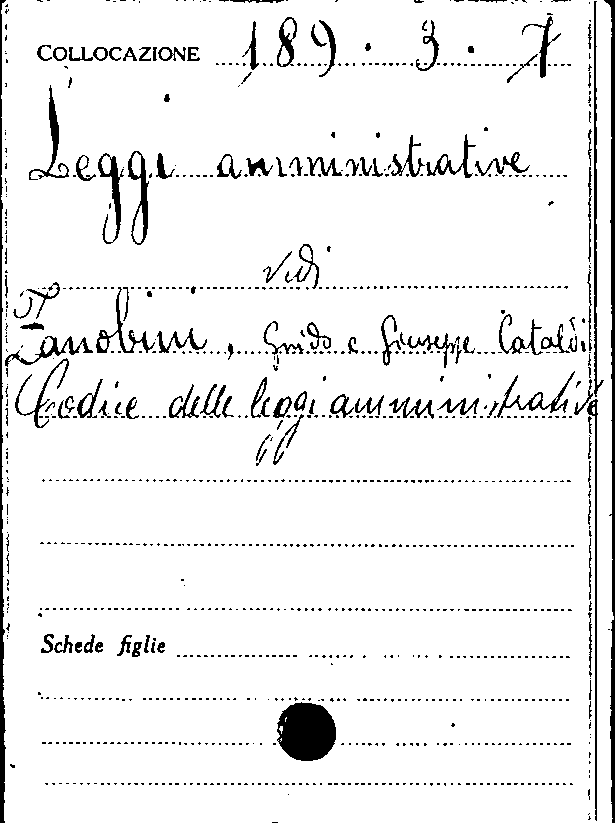 COLLOCAZIONE 189 . 3 . 7
Leggi amministrative
vedi
Zanobini, Guido e Giuseppe Cataldi
Codice delle leggi amministrative
Schede figlie